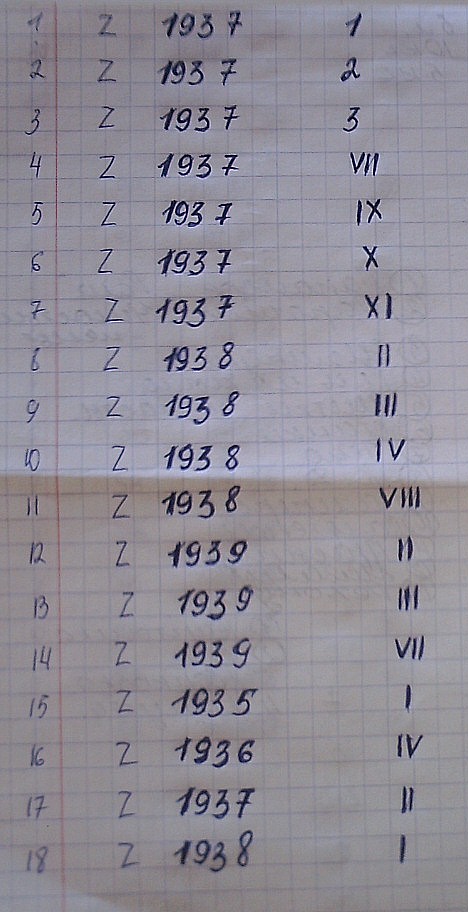 1 Z 1937 1
2 Z 1937 2
3 Z 1937 3
4 Z 1937 VII
5 Z 1937 IX
6 Z 1937 X
7 Z 1937 XI
8 Z 1938 II
9 Z 1938 III
10 Z 1938 IV
11 Z 1938 VIII
12 Z 1939 II
13 Z 1939 III
14 Z 1939 VII
15 Z 1935 I
16 Z 1936 IV
17 Z 1937 II
18 Z 1938 I